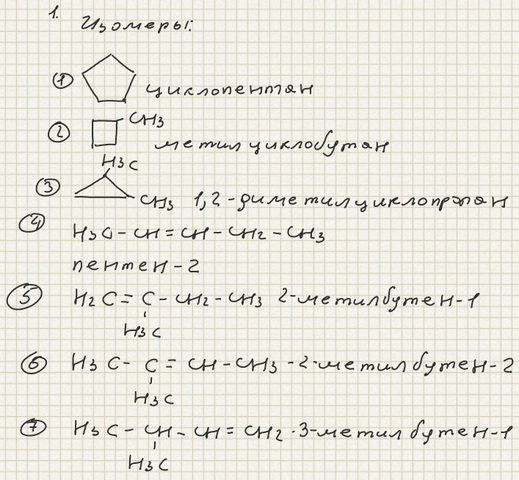 1. Изомеры:
① циклопентан
② CH3 метилциклобутан
③ H3C CH3 1,2-диметилциклопропан
④ H3C-CH=CH-CH2-CH3
пентен-2
⑤ H2C=C-CH2-CH3 2-метилбутен-1
H3C
⑥ H3C-C=CH-CH3 -2-метилбутен-2
H3C
⑦ H3C-CH-CH=CH2 · 3-метилбутен-1
H3C